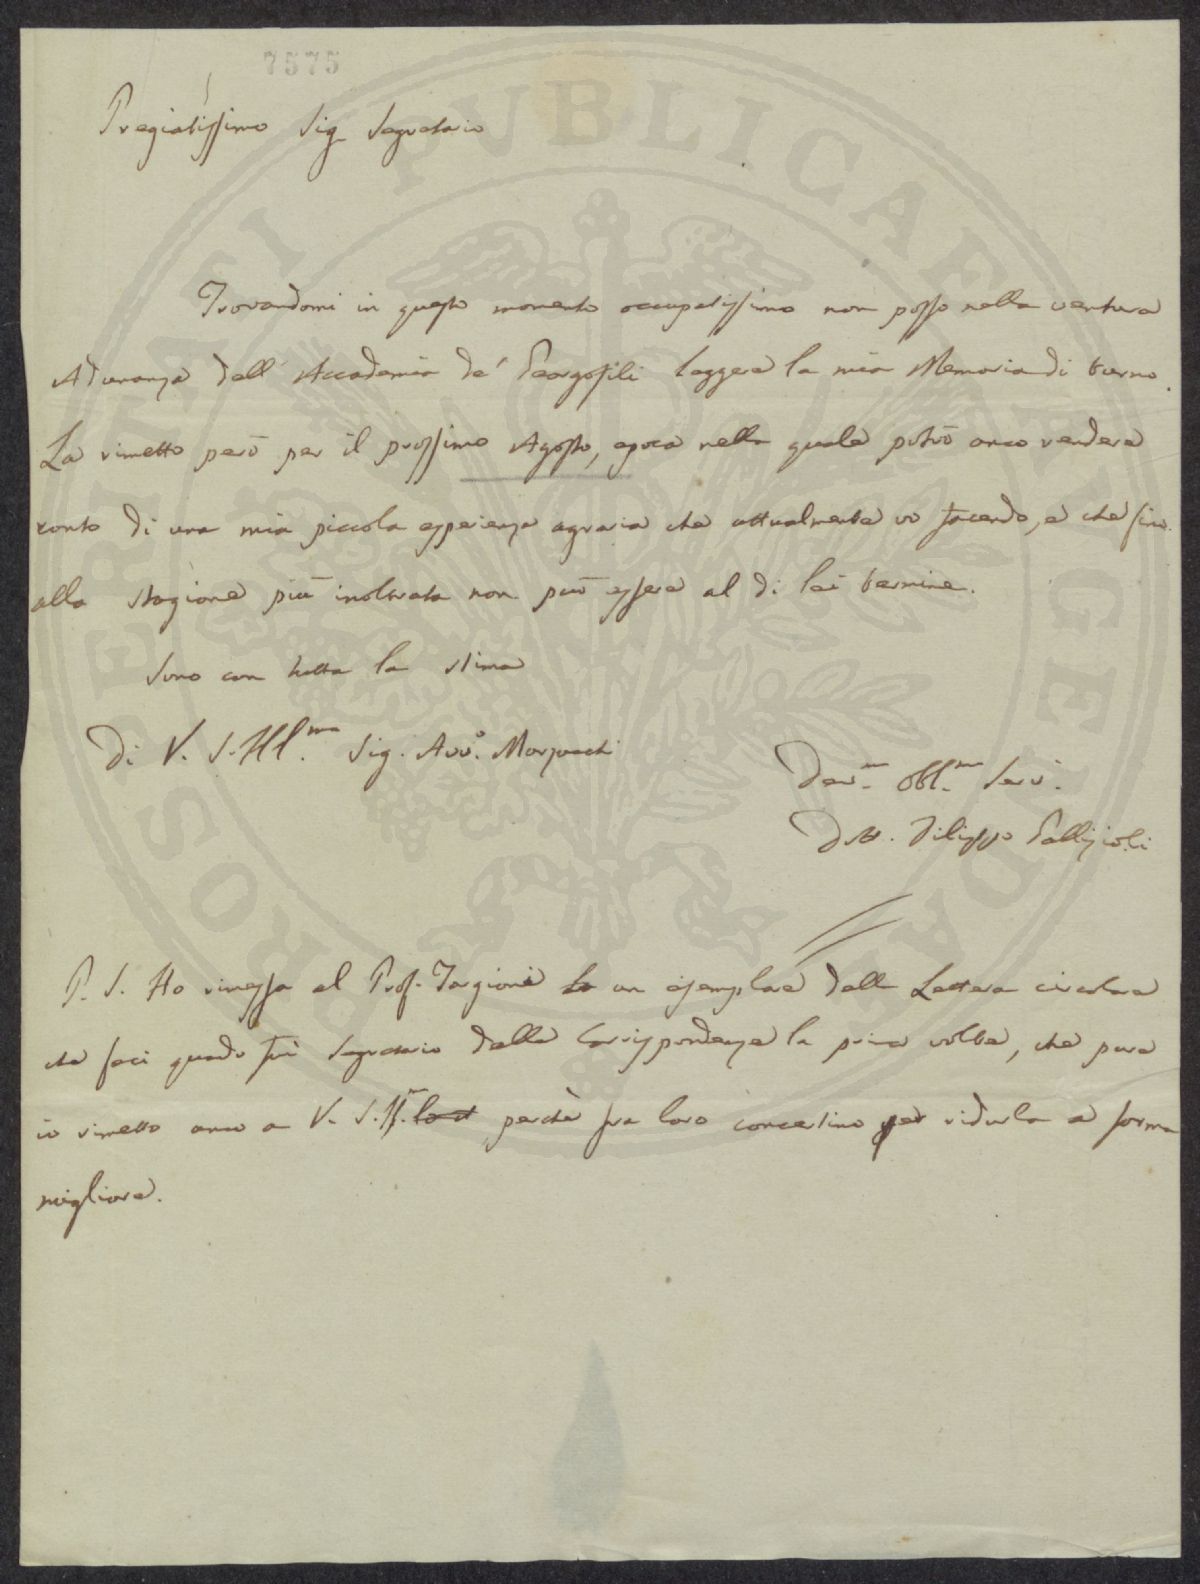 7575
Pregiatissimo Sig. Segretario
Trovandomi in questo momento occupatissimo non posso nella ventura
Adunanza dell' Accademia de' Georgofili leggere la mia Memoria di turno.
La rimetto però per il prossimo Agosto, epoca nella quale potrò anco rendere
conto di una mia piccola esperienza agraria che attualmente vò facendo, e che fino
alla stagione più inoltrata non può essere al di lei termine.
Sono con tutta la stima
Di V. S. Ill.ma Sig. Avv.o Marzucchi
Dev.mo Obbl.mo Serv.
Dott. Filippo Gallizioli
P. S. Ho rimessa al Prof. Targioni un esemplare della Lettera circolare
che feci quado fui Segretario della Corrispondenza la prima volta, che pure
io rimetto anco a V. S. Ill.ma perchè fra loro concertino per ridurla a forma
migliore.
PROSPERITATI PUBLICAE AUGENDAE